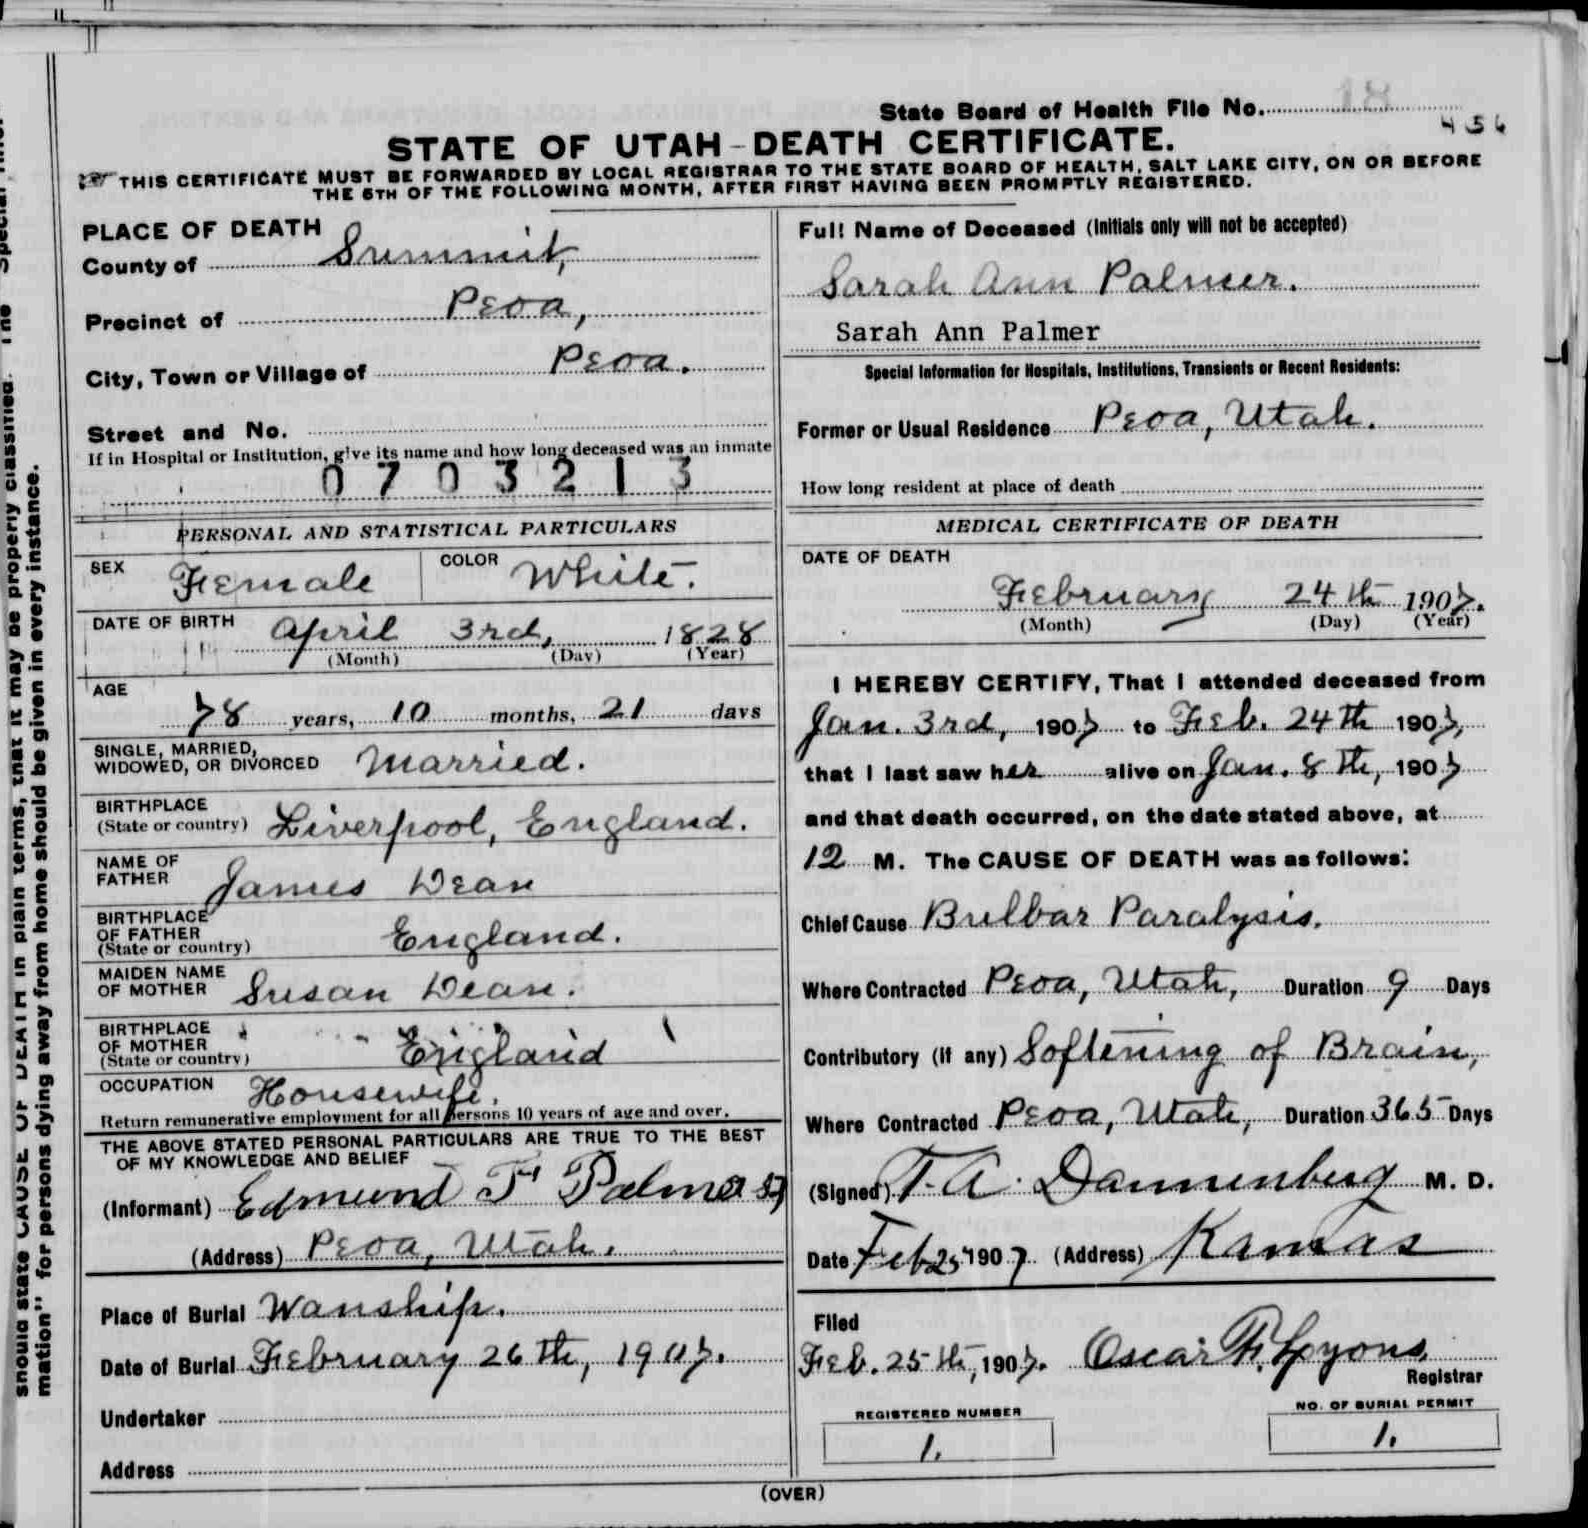 State Board of Health File No. 18
456
STATE OF UTAH-DEATH CERTIFICATE.
THIS CERTIFICATE MUST BE FORWARDED BY LOCAL REGISTRAR TO THE STATE BOARD OF HEALTH, SALT LAKE CITY, ON OR BEFORE
THE 5TH OF THE FOLLOWING MONTH, AFTER FIRST HAVING BEEN PROMPTLY REGISTERED.
PLACE OF DEATH
County of Summit,
Precinct of Peoa,
City, Town or Village of Peoa.
Street and No.
If in Hospital or Institution, give its name and how long deceased was an inmate
0703213
PERSONAL AND STATISTICAL PARTICULARS
SEX Female COLOR White.
DATE OF BIRTH April 3rd, 1828
(Month) (Day) (Year)
AGE
78 years, 10 months, 21 days
SINGLE, MARRIED,
WIDOWED, OR DIVORCED Married.
BIRTHPLACE
(State or country) Liverpool, England.
NAME OF
FATHER James Dean
BIRTHPLACE
OF FATHER
(State or country) England.
MAIDEN NAME
OF MOTHER Susan Dean.
BIRTHPLACE
OF MOTHER
(State or country) England
OCCUPATION Housewife.
Return remunerative employment for all persons 10 years of age and over.
THE ABOVE STATED PERSONAL PARTICULARS ARE TRUE TO THE BEST
OF MY KNOWLEDGE AND BELIEF
(Informant) Edmund F Palmer
(Address) Peoa, Utah.
Place of Burial Wanship.
Date of Burial February 26th, 1907.
Undertaker
Address
Full Name of Deceased (Initials only will not be accepted)
Sarah Ann Palmer.
Sarah Ann Palmer
Special Information for Hospitals, Institutions, Transients or Recent Residents:
Former or Usual Residence Peoa, Utah.
How long resident at place of death
MEDICAL CERTIFICATE OF DEATH
DATE OF DEATH
February 24th 1907.
(Month) (Day) (Year)
I HEREBY CERTIFY, That I attended deceased from
Jan. 3rd, 1907 to Feb. 24th 1907,
that I last saw her alive on Jan. 8th, 1907
and that death occurred, on the date stated above, at
12 M. The CAUSE OF DEATH was as follows:
Chief Cause Bulbar Paralysis.
Where Contracted Peoa, Utah, Duration 9 Days
Contributory (if any) Softening of Brain,
Where Contracted Peoa, Utah, Duration 365 Days
(Signed) T. A. Dannenberg M. D.
Date Feb 25 1907 (Address) Kamas
Filed
Feb. 25th, 1907. Oscar F. Lyons.
Registrar
REGISTERED NUMBER
1.
NO. OF BURIAL PERMIT
1.
(OVER)
should state CAUSE OF DEATH in plain terms, that it may be properly classified. The "Special Infor-
mation" for persons dying away from home should be given in every instance.